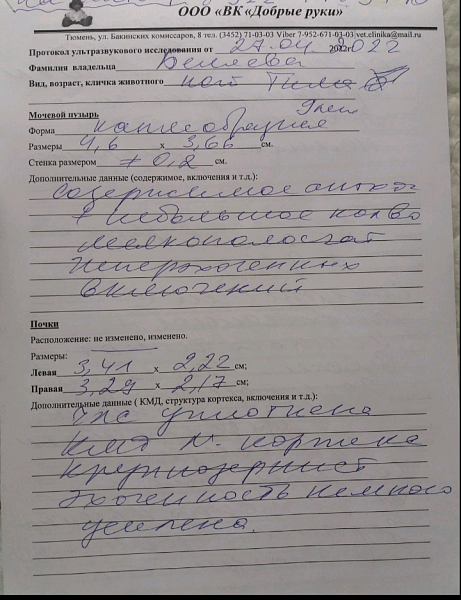 ООО «ВК «Добрые руки»
Тюмень, ул. Бакинских комиссаров, 8 тел. (3452) 71-03-03 Viber 7-952-671-03-03 vet.clinika@mail.ru
Протокол ультразвукового исследования от 27.04.2022
Фамилия владельца Беляева
Вид, возраст, кличка животного кот Тима
9 лет
Мочевой пузырь
Форма каплеобразная
Размеры 4,6 х 3,66 см.
Стенка размером 0,2 см.
Дополнительные данные (содержимое, включения и т.д.):
содержимое
небольшое кол-во
гиперэхогенных
включений
Почки
Расположение: не изменено, изменено.
Размеры:
Левая 3,41 х 2,22 см;
Правая 3,29 х 2,17 см;
Дополнительные данные ( КМД, структура кортекса, включения и т.д.):
ЧЛС уплотнена
КМД N. кортекс
крупнозернист
эхогенность немного
усилена.